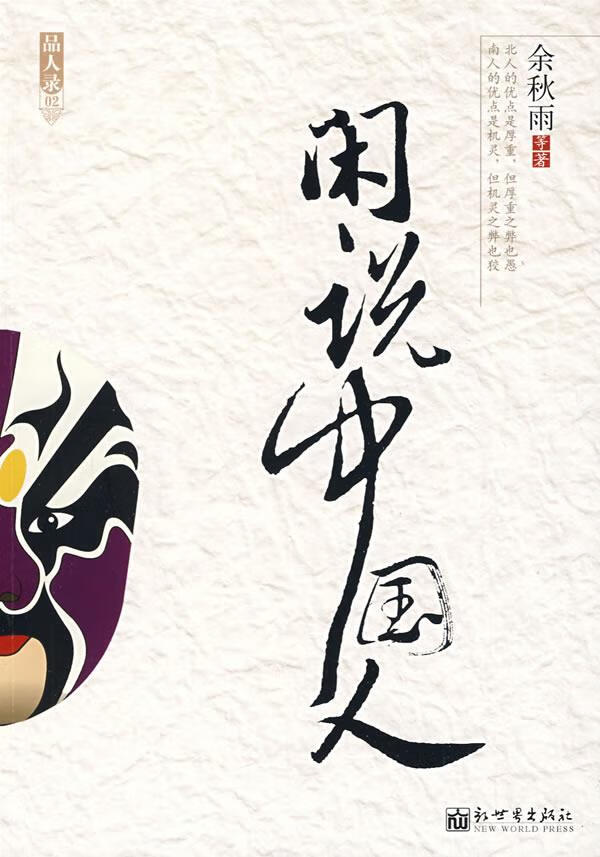 品人录
02
余秋雨
等著
北人的优点是厚重,但厚重之弊也愚。
南人的优点是机灵,但机灵之弊也狡
闲说中国人
新世界出版社
NEW WORLD PRESS